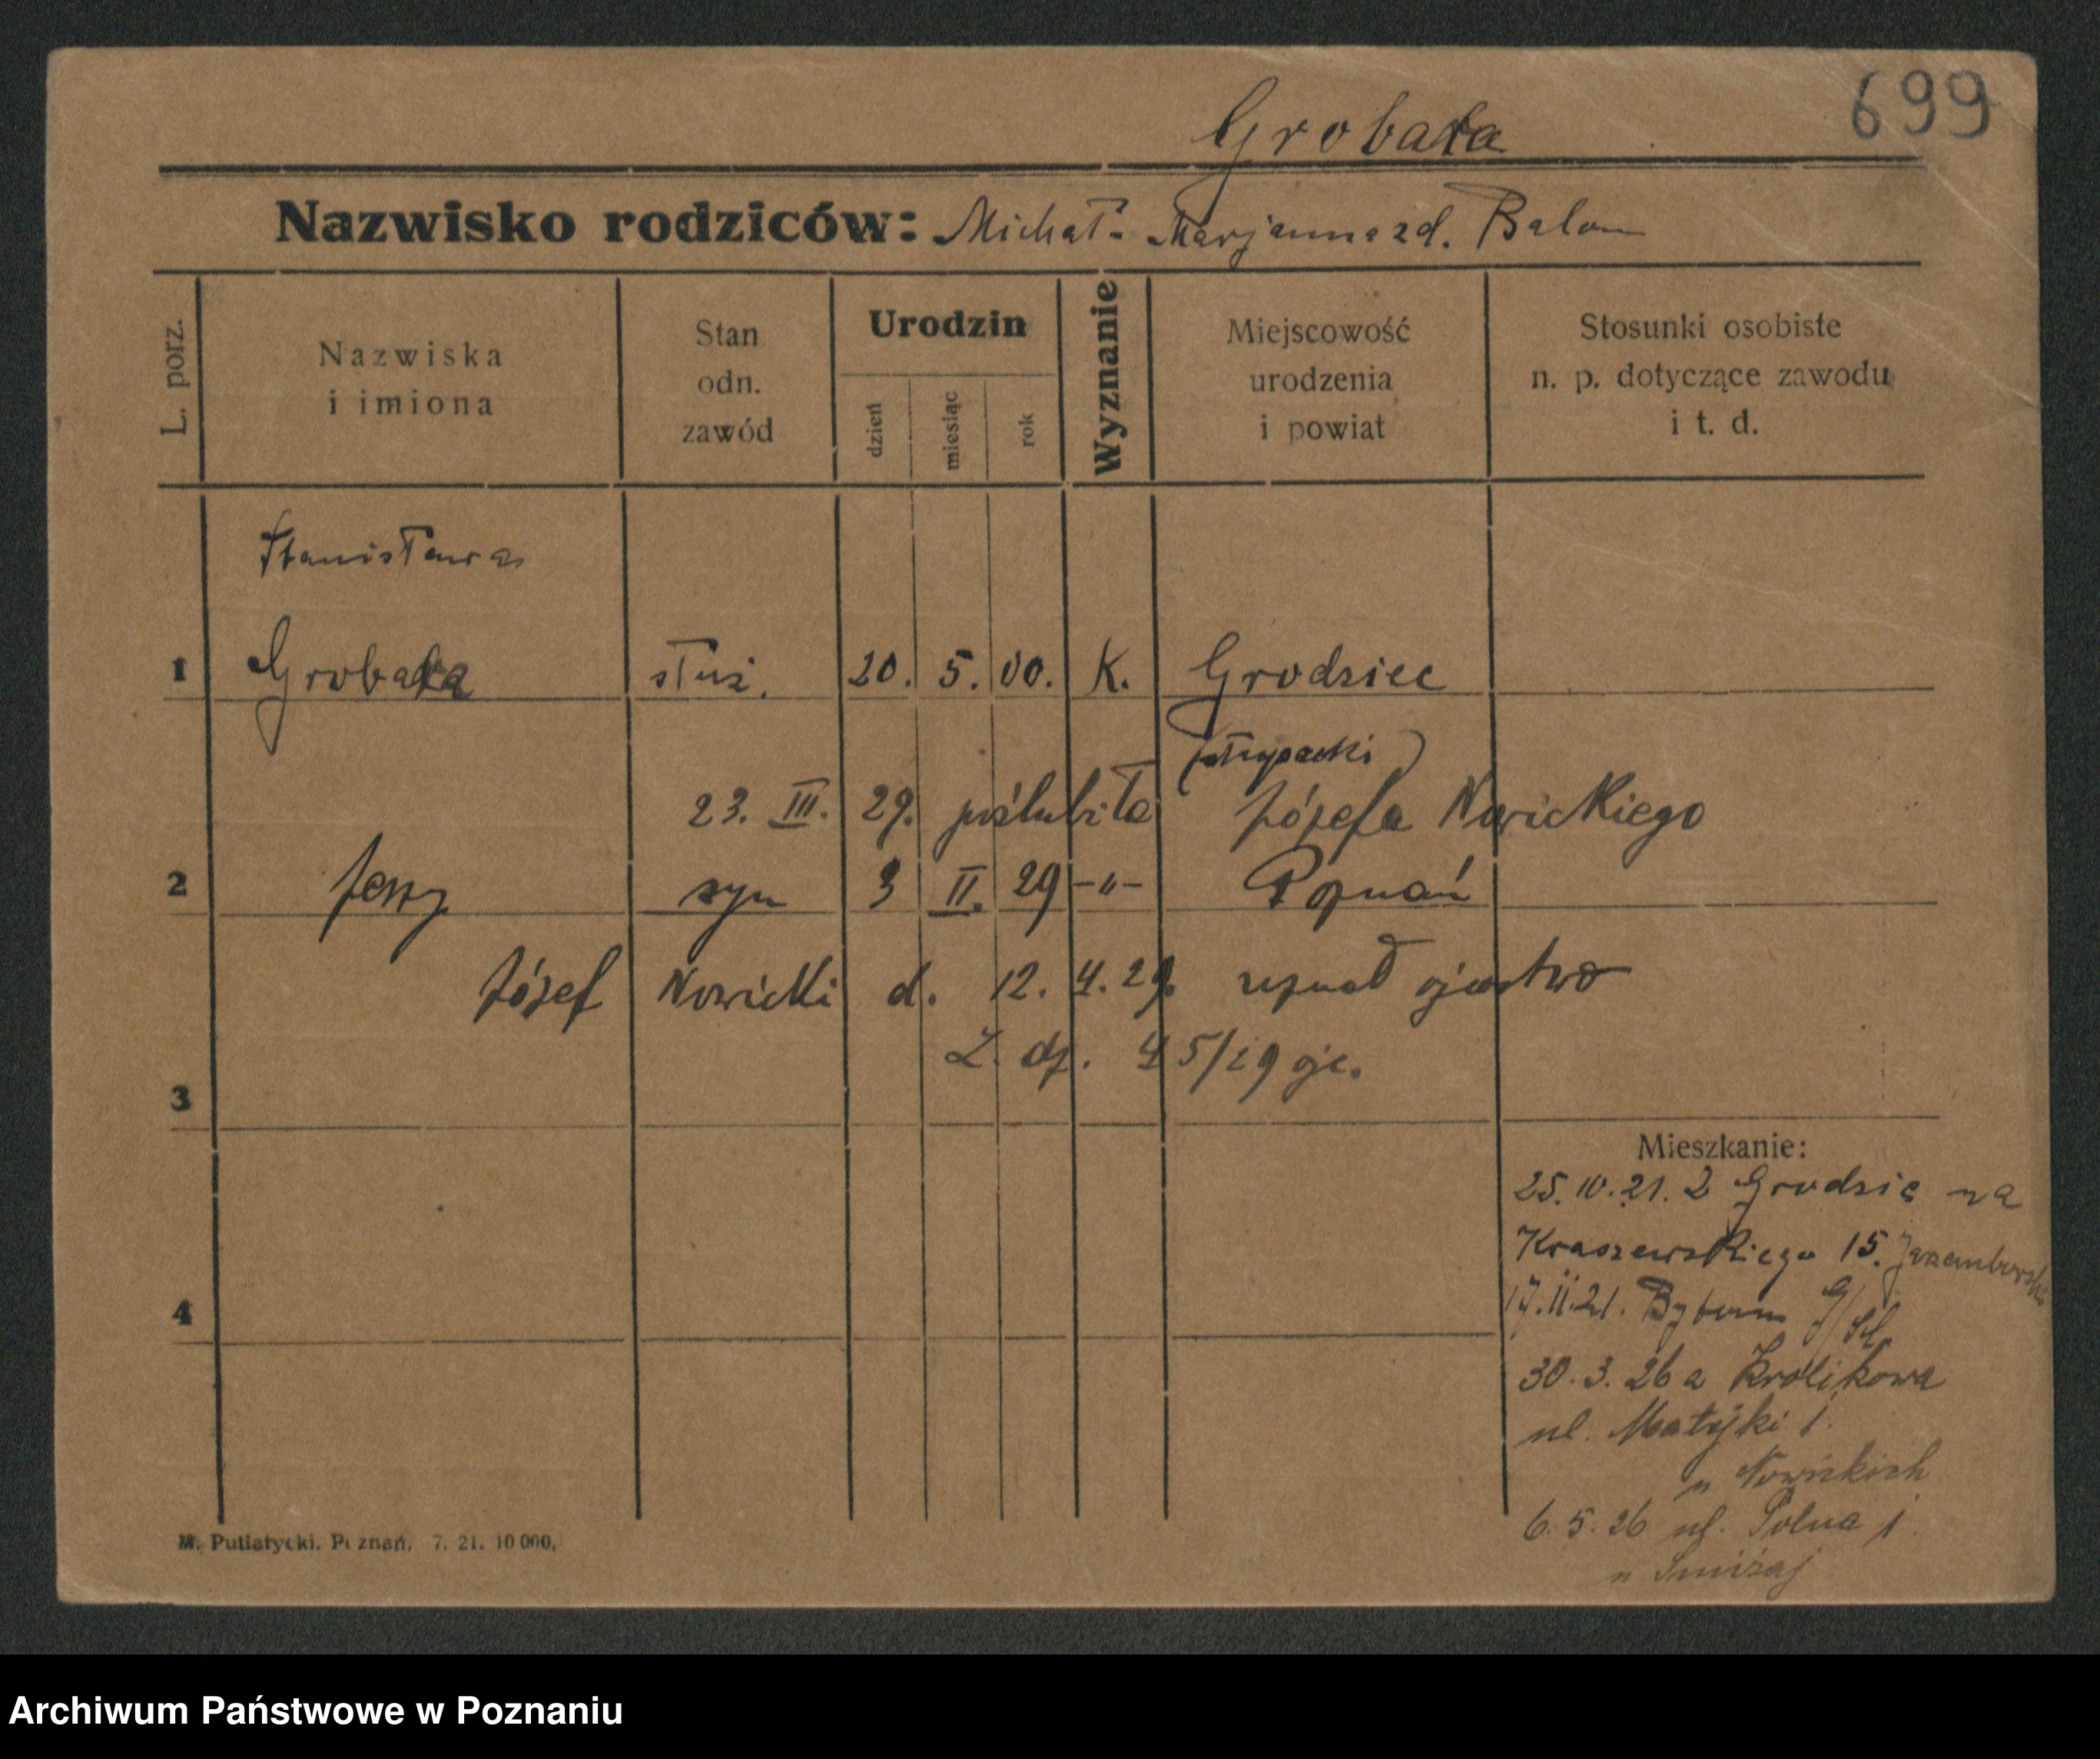 699
Grobała
Nazwisko rodziców: Michał - Marjanna zd. Balom
L. porz.
Nazwiska i imiona
Stan odn. zawód
Urodzin
dzień
miesiąc
rok
Wyznanie
Miejscowość urodzenia i powiat
Stosunki osobiste n. p. dotyczące zawodu i t. d.
Stanisława
1 Grobała służ. 20. 5. 00. K. Grodziec
23. III. 29. poślubiła Józefa Nowickiego
2 Jerzy syn 3 II. 29 -"- Poznań
Józef Nowicki d. 12. 4. 29. uznał ojcostwo
L. dz. 45/29 ojc.
3
Mieszkanie:
25. 10. 21. z Grodzic na
Kraszewskiego 15.
4
17.11.21. Bytom G/Śl.
30. 3. 26 a Królikowa
ul. Matejki 1.
u Nowickich
6. 5. 26 ul. Polna 1.
M. Putiatycki. Poznań. 7. 21. 10 000.
Archiwum Państwowe w Poznaniu